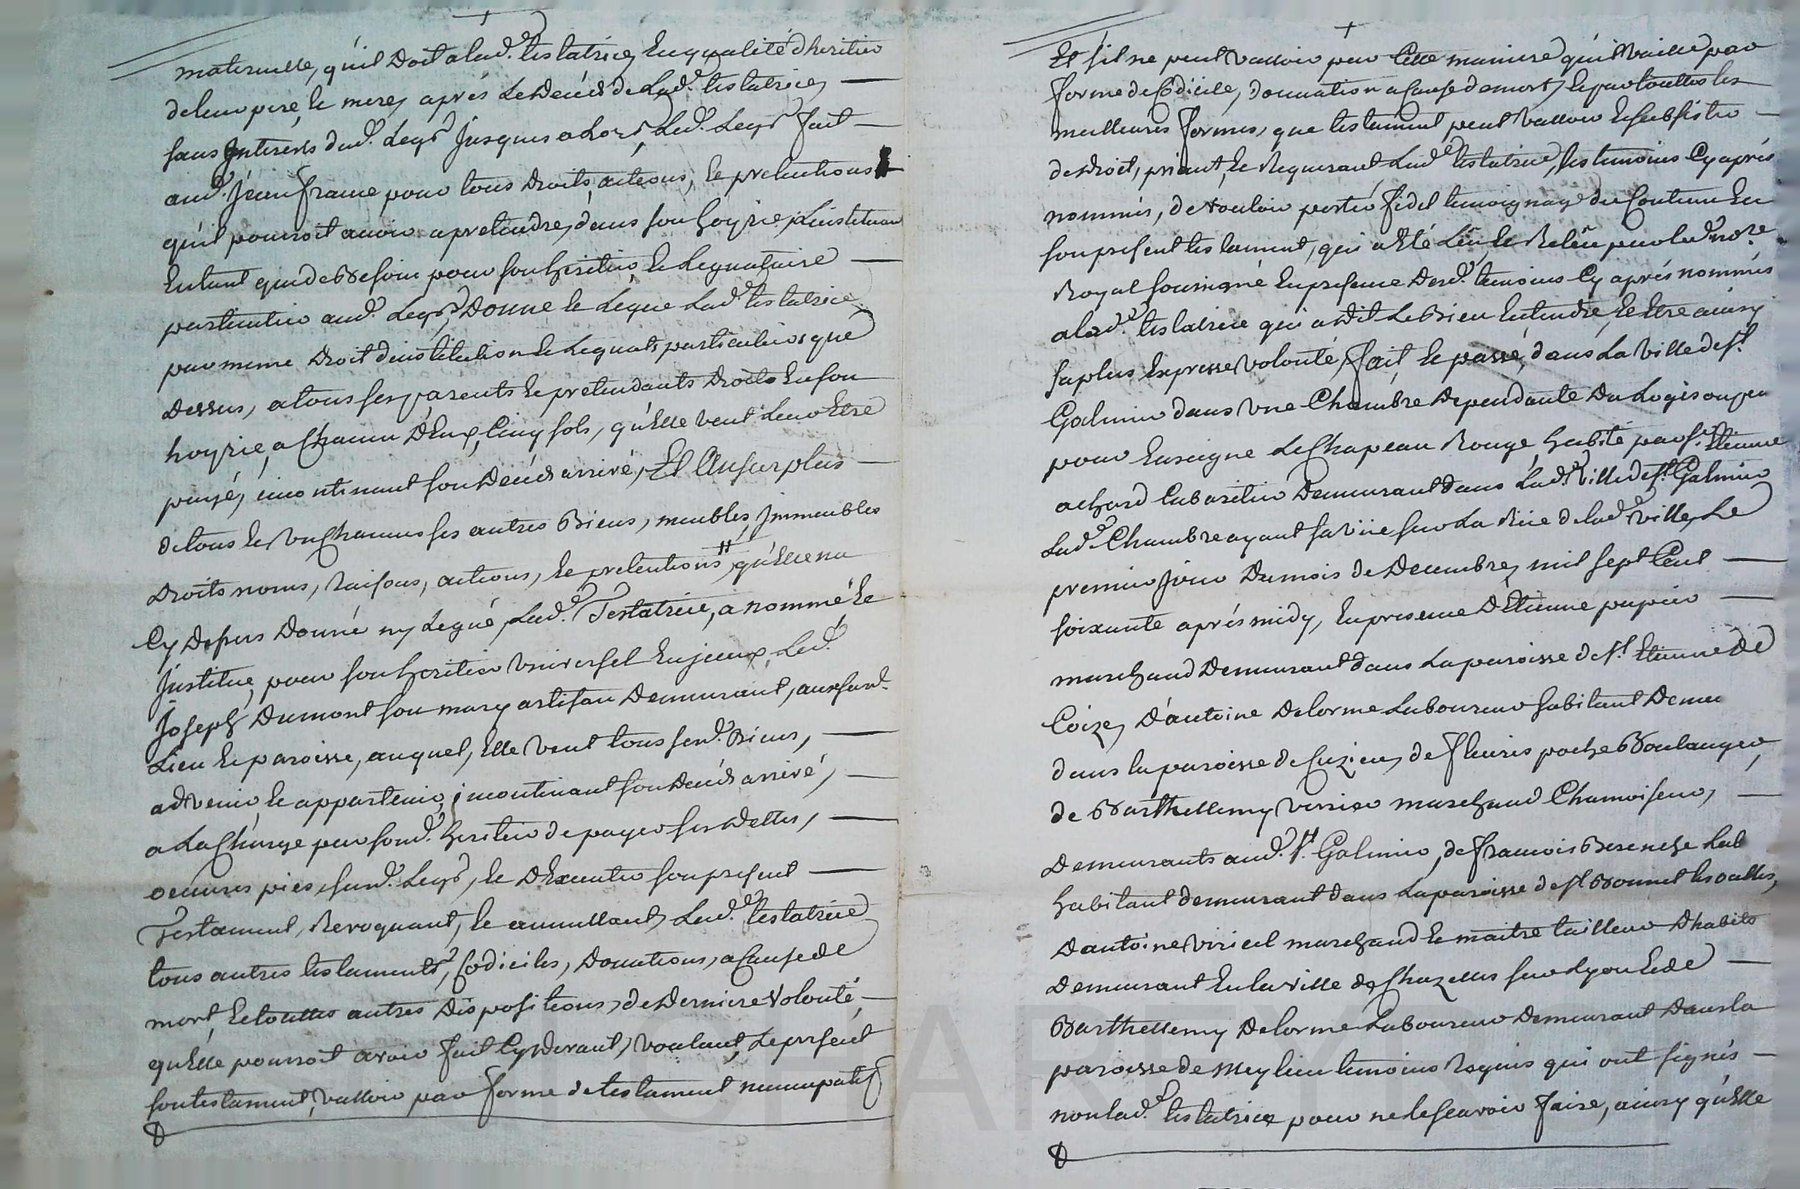 maternelle, qu'il Doit a lad.e testatrice, En qualité d'heritier
de leur pere, Et mere, aprés Le Deceds de Lad.e testatrice,
sans Interêts dud.t Legs Jusques a Lors, Led.t Legs fait
aud.t Jean france pour tous Droits, actions, Et pretentions
qu'il pourroit avoir a pretendre, dans son hoyrie, L'instituant
Entant que de Besoin pour son heritier, Et Legnataire
particulier aud.t Legs, Donne Et Legue Lad.e testatrice,
par meme Droit d'institution Et Legnats particuliers que
Dessus, a tous ses parents Et pretendants Droits En son
hoyrie, a Chacun D'eux, Cinq sols, qu'Elle veut Leur Etre
payés, incontinant son Deceds arrivé, Et Au surplus
de tous Et un Chacuns ses autres Biens, meubles, Jmmeubles
Droits noms, raisons, actions, Et pretentions, qu'Elle na
Cy Depus Donné ny Legué, Lad.e Testatrice, a nommé Et
Jnstitué, pour son heritier Universel En jceux, Led.t
Joseph Dumont son mary artisan Demeurant, aususd.t
Lieu Et paroisse, auquel, Elle veut tous sesd.ts Biens,
advenir, Et appartenir, incontinant son Deceds arrivé,
a La Charge par sond.t heritier de payer ses Dettes,
oeuvres pies, susd.ts Legs, Et D'Executer son present
Testament, Revoquant, Et annullant, Lad.e testatrice
tous autres testaments, Codiciles, Donations, a Cause de
mort, Et touttes autres Dispositions, de Derniere Volonté,
qu'Elle pourroit avoir fait Cy Devant, voulant, Le present
son testament, valloir par forme de testament nuncupatif
Et s'il ne peut valloir par Cette maniere, qu'il vaille par
forme de Codicile, donnation a Cause de mort, Et par touttes les
meilleures formes, que testament, peut valloir Et subsister
de Droit, priant, Et Requerant Lad.e testatrice, les temoins Cy aprés
nommés, de vouloir porter fidel temoignage du Contenu En
son present testament, qui a Eté Lû Et Relû par led.t no.re
Royal soussigné En presence Desd.ts temoins Cy aprés nommés
a lad.e testatrice qui a dit Le Bien Entendre, Et Etre ainsy
sa plus Expresse volonté, fait, Et passé, dans La Ville de S.t
Galmier dans Une Chambre Dependante Du Logis ou pen
pour Enseigne Le Chapeau Rouge habité par S.r Etienne
achard Cabaretier Demeurant dans Lad.e Ville de S.t Galmier
Lad.e Chambre ayant sa Vüe sur La Rüe de lad.e ville, Le
premier jour Du mois de Decembre, mil sept Cent
soixante aprés midy, En presence D'Etienne papier
marchand Demeurant dans La paroisse de S.t Etienne De
Coize, D'antoine Delorme Laboureur habitant Demeu
dans la paroisse de Cuzieu, de fleuris poche Boulanger,
de Barthellemy Verrier marchand Chamoiseur,
Demeurants aud.t S.t Galmier, de francois
habitant demeurant dans La paroisse de S.t Bonnet les oulles,
D'antoine Viricel marchand Et maitre tailleur D'habits
Demeurant En la ville de Chazelles sur Lyon Et de
Barthellemy Delorme Laboureur Demeurant Dans la
paroisse de Meylieu temoins Requis qui ont signés
non lad.e testatrice pour ne le sçavoir faire, ainsy qu'Elle